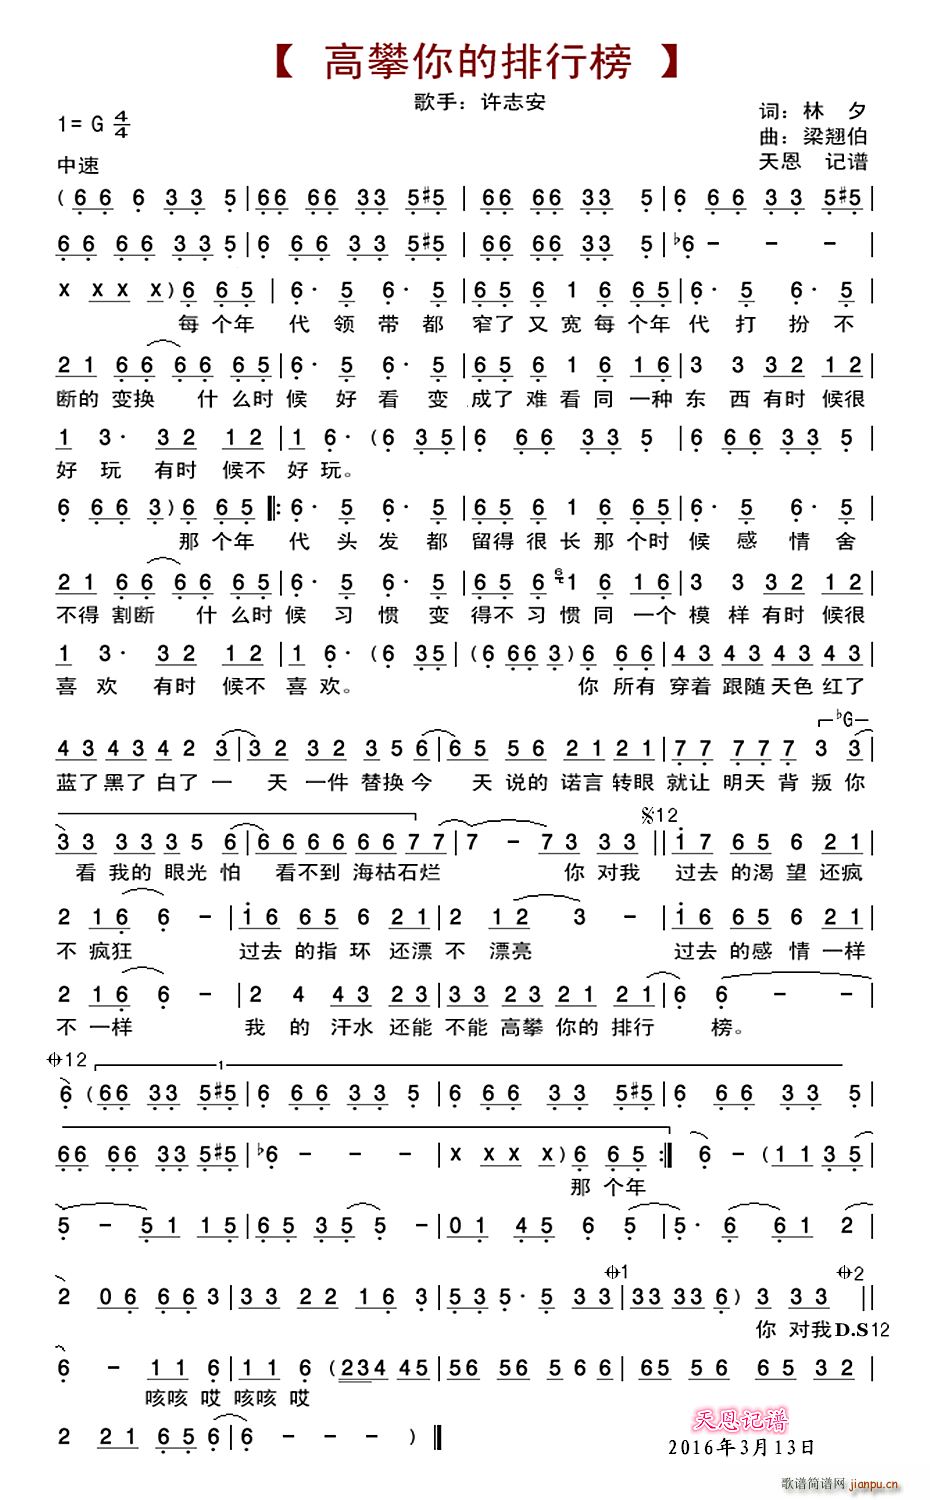 【 高攀你的排行榜 】
歌手：许志安
词：林 夕
1= G 4/4
曲：梁翘伯
中速
天恩 记谱
( 6 6 6 3 3 5 | 66 66 33 5#5 | 66 66 33 5 | 6 6 6 3 3 5#5 |
6 6 6 6 3 3 5 | 6 6 6 3 3 5#5 | 66 66 33 5 | ♭6 - - - |
x x x x ) 6 6 5 | 6· 5 6· 5 | 6 5 6 1 6 6 5 | 6· 5 6· 5 |
每 个年 代 领 带 都 窄了 又 宽 每 个年 代 打 扮 不
2 1 6 6 6 6 6 5 | 6· 5 6· 5 | 6 5 6 1 6 1 6 | 3 3 3 2 1 2 |
断的 变换 什 么时 候 好 看 变 成了 难 看 同 一种 东 西 有时 候很
1 3· 3 2 1 2 | 1 6· ( 6 3 5 | 6 6 6 3 3 5 | 6 6 6 3 3 5 |
好 玩 有时 候不 好 玩。
6 6 6 3 ) 6 6 5 |: 6· 5 6· 5 | 6 5 6 1 6 6 5 | 6· 5 6· 5 |
那 个年 代 头 发 都 留得 很 长 那 个时 候 感 情 舍
2 1 6 6 6 6 6 5 | 6· 5 6· 5 | 6 5 6 1 6 1 6 | 3 3 3 2 1 2 |
不得 割断 什 么时 候 习 惯 变 得不 习 惯 同 一个 模 样 有时 候很
1 3· 3 2 1 2 | 1 6· ( 6 3 5 | ( 6 6 6 3 ) 6 6 6 | 4 3 4 3 4 3 4 3 |
喜 欢 有时 候不 喜 欢。 你 所有 穿着 跟随 天色 红了
♭G
4 3 4 3 4 2 3 | 3 2 3 2 3 5 6 | 6 5 5 6 2 1 2 1 | 7 7 7 7 7 3 3 |
蓝了 黑了 白了 一 天 一件 替换 今 天 说的 诺言 转眼 就让 明天 背 叛 你
𝄋12
3 3 3 3 3 5 6 | 6 6 6 6 6 6 7 7 | 7 - 7 3 3 3 || 1 7 6 5 6 2 1 |
看 我的 眼光 怕 看不到 海枯石烂 你 对我 过去 的渴 望 还疯
2 1 6 6 - | 1 6 6 5 6 2 1 | 2 1 2 3 - | 1 6 6 5 6 2 1 |
不 疯狂 过去 的指 环 还漂 不 漂亮 过去 的感 情 一样
2 1 6 6 - | 2 4 4 3 3 2 | 3 3 2 2 2 1 2 1 | 6 6 - - |
不 一样 我 的 汗水 还能 不能 高攀 你的 排行 榜。
𝄌12 1
6 ( 66 33 5#5 | 6 6 6 3 3 5 | 6 6 6 3 3 5#5 | 6 6 6 3 3 5 |
66 66 33 5#5 | ♭6 - - - | x x x x ) 6 6 5 :| 6 - ( 1 1 3 5 |
那 个年
5 - 5 1 1 5 | 6 5 3 5 5 - | 0 1 4 5 6 5 | 5· 6 6 1 2 |
𝄌1 𝄌2
2 0 6 6 6 3 | 3 3 2 2 1 6 3 | 5 3 5· 5 3 3 | 33 33 6 ) 3 3 3 ||
你 对我 D.S12
6 - 1 1 6 | 6 1 1 6 ( 234 45 | 56 56 5 6 6 | 65 56 5 3 2 |
咳咳 哎 咳咳 哎
2 2 1 6 5 6 | 6 - - - ) ‖
天恩记谱
2016年3月13日
歌谱简谱网 jianpu.cn